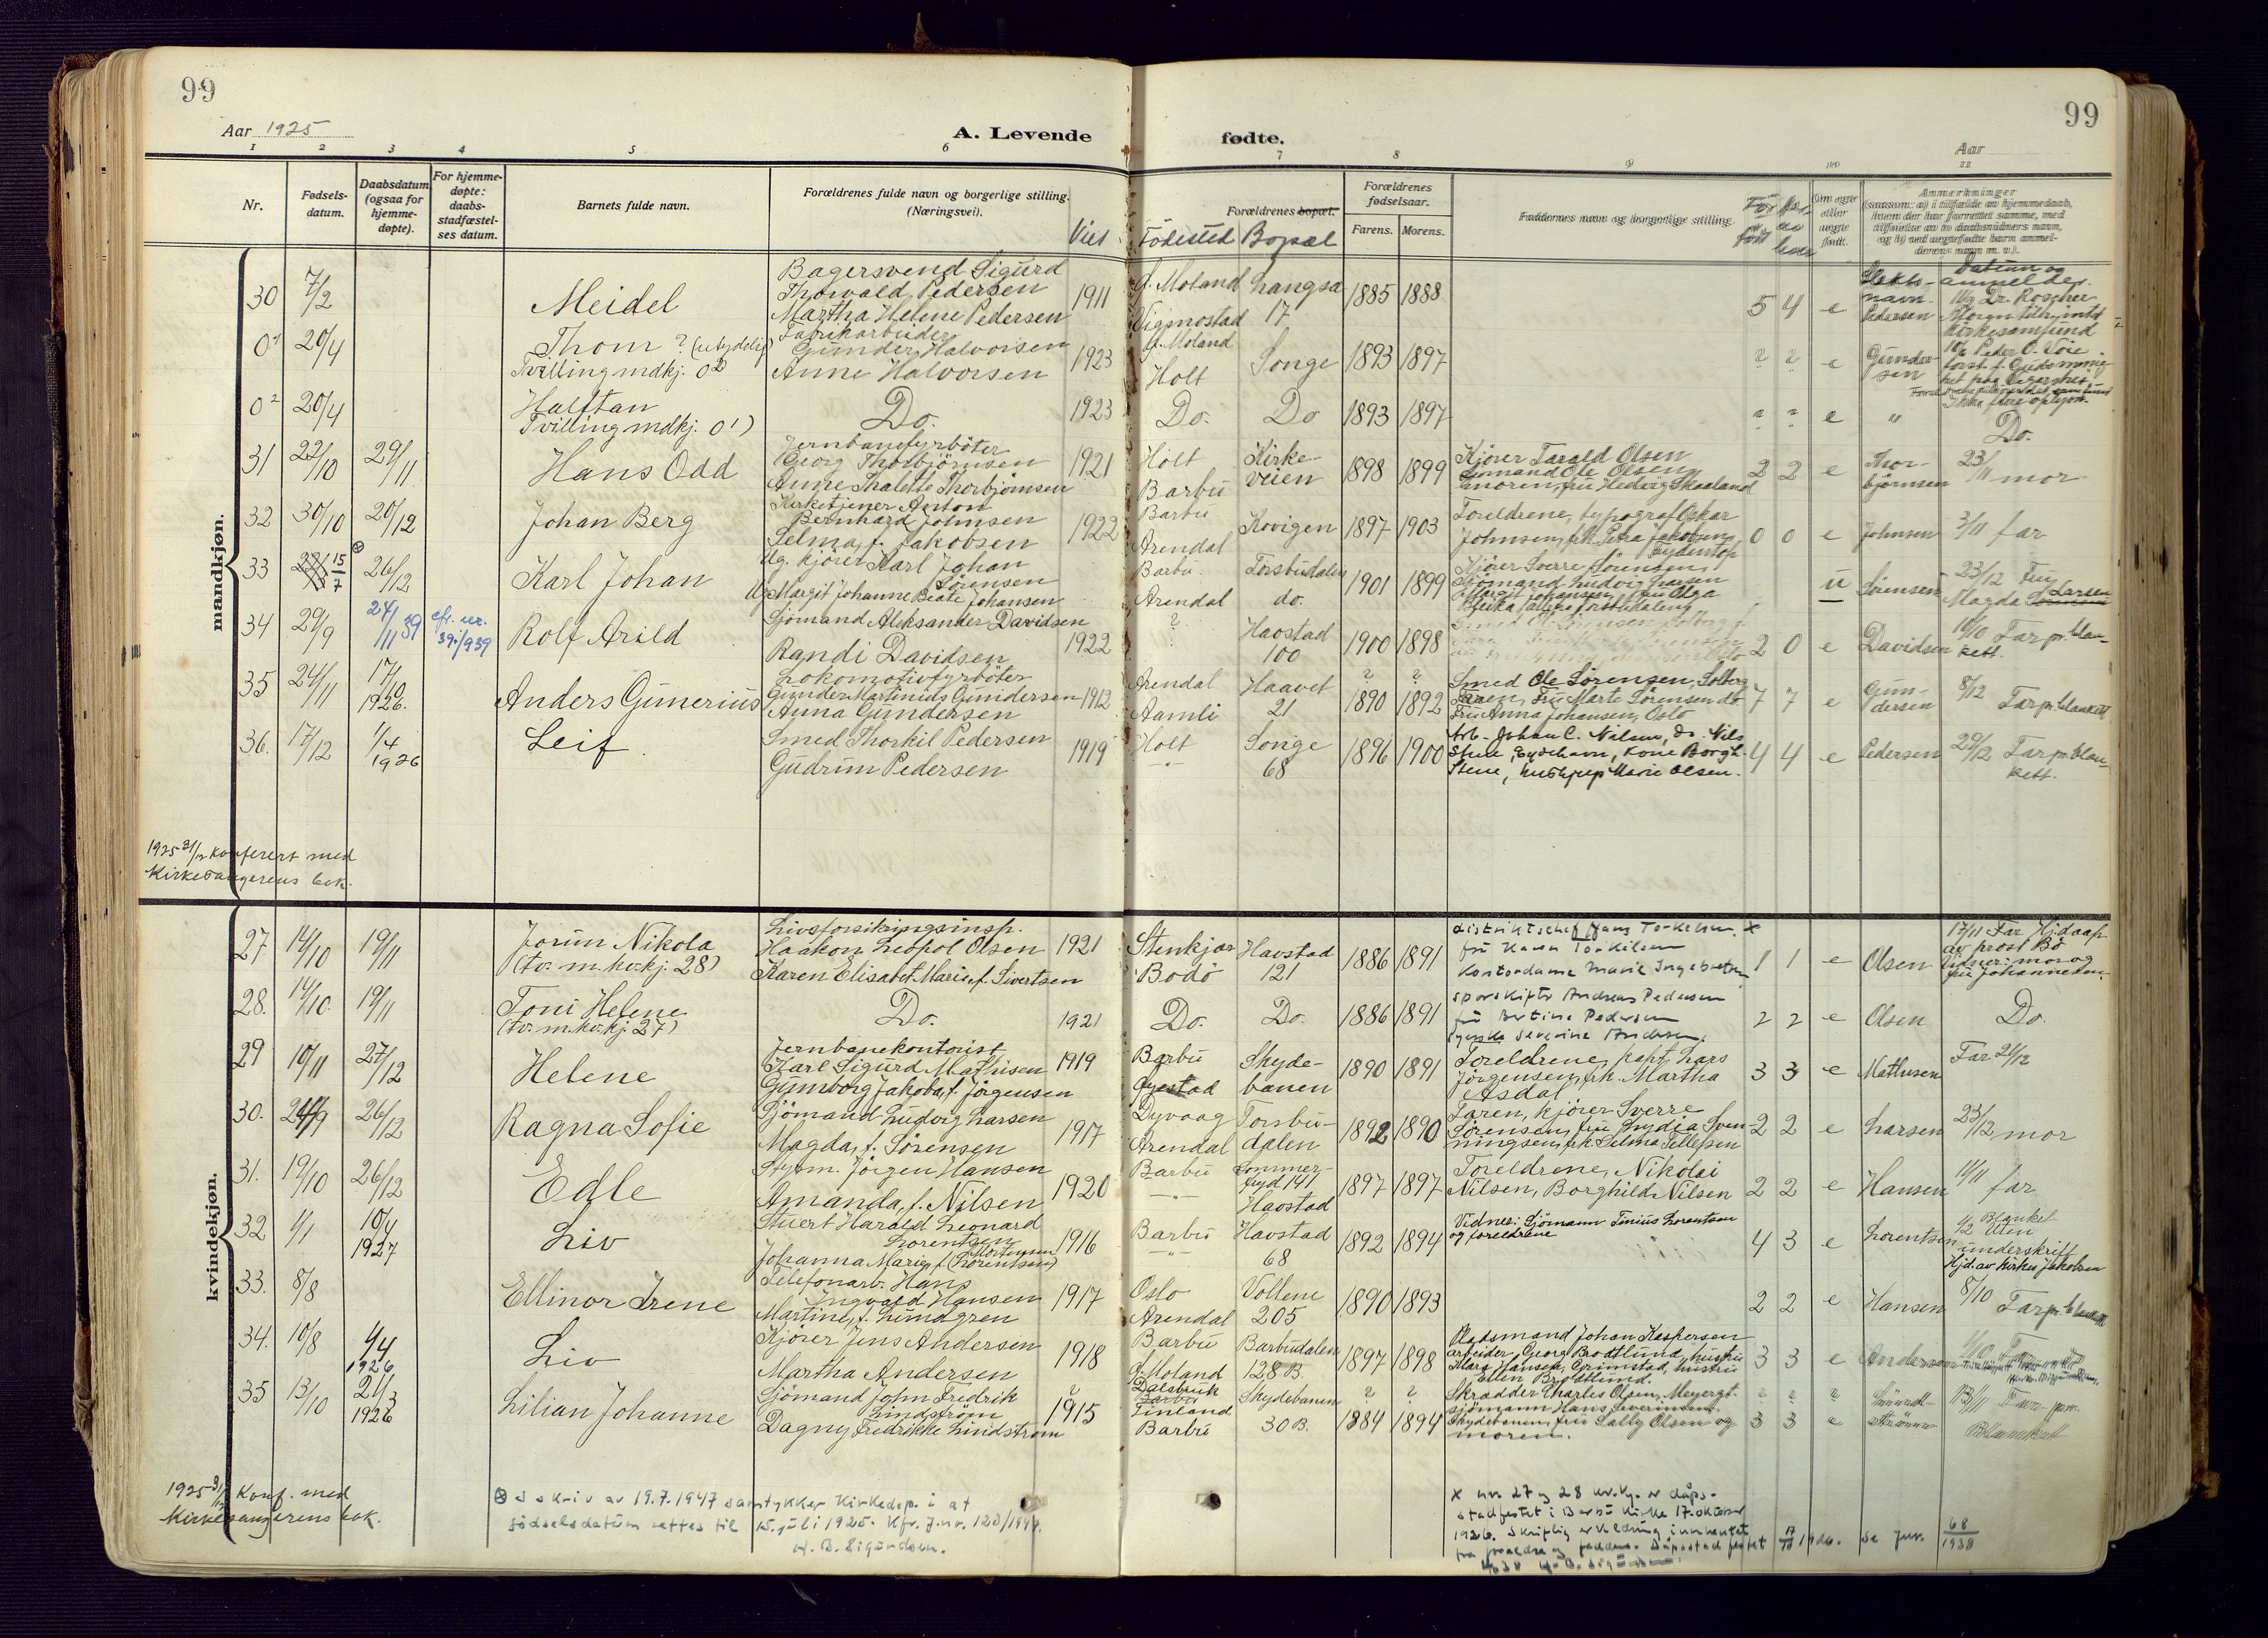 99
Aar 1925
A. Levende
1 2 3 4 5 6
Nr.
Fødsels-
datum.
Daabsdatum
(ogsaa for
hjemme-
døpte).
For hjemme-
døpte:
daabs-
stadfæstel-
ses datum.
Barnets fulde navn.
Forældrenes fulde navn og borgerlige stilling.
(Næringsvei).
Viet
99
fødte.
Aar
7 8 9 10 11
Forældrenes bopæl.
Födested Bopæl
Forældrenes
fødselsaar.
Farens. Morens.
Faddernes navn og borgerlige stilling.
Om egte
eller
uegte
født.
Anmerkninger
mandkjøn.
30 7/2
Meidel
Bagersvend Sigurd
Thorvald Pedersen
Martha Helene Pedersen
1911
Ø. Moland Langsæ
Vigmostad 17
1885 1888
5 4 e
Slekts-
navn.
Pedersen
Datum og
anmelder.
kirkesamfund
0¹ 20/4
Thom ? (utydelig)
Tvilling mdkj. 0²
Fabrikarbeider
Gunder Halvorsen
Anne Halvorsen
1923
Ø. Moland
Holt
Songe
1893 1897
? ? e
Gunder-
sen
Peder O. Voie
0² 20/4
Halftan
Tvilling mdkj. 0¹)
Do.
1923
Do. Do
1893 1897
? ? e " Do.
31 22/10 29/11
Hans Odd
Jernbanefyrböter
Georg Thorbjörnsen
Anne Thalette Thorbjörnsen
1921
Holt
Barbu
Kirke-
veien
1898 1899
Kjörer Tarald Olsen
Sjömand Ole Olsen
moren, fru Hedvig Skaaland
2 2 e
Thor-
björnsen
23/11 mor
32 30/10 20/12
Johan Berg
Kirketjener Anton
Bernhard Johnsen
Selma, f. Jakobsen
1922
Barbu
Arendal
Kovigen
1897 1903
Foreldrene, typograf Oskar
Johnsen, frk. Petra Jakobsen,
0 0 e Johnsen 3/11 far
33 15/7 26/12
Karl Johan
Ug. kjörer Karl Johan
Sörensen
Ug. Margit Johanne Beate Johansen
Barbu
Arendal
Torsbudalen
do.
1901 1899
Kjörer Sverre Sörensen,
sjömand Ludvig Larsen
Margit Johansen, fru Olga
u Sörensen
23/12 Fru
Magda Larsen
34 29/9 24/11 39 39/939
Rolf Arild
Sjömand Aleksander Davidsen
Randi Davidsen
1922
?
Havstad
100
1900 1898
2 0 e Davidsen
Far pr. blan-
kett.
35 24/11 17/10 1926.
Anders Gunerius
Lokomotivfyrböter
Gunder Martinius Gundersen
Anna Gundersen
1912
Arendal
Aamli
Haavet
21
? ?
1890 1892
Smed Ole Sörensen, Solberg
Faren, Fru Marte Sörensen do
Fru Anna Johansen, Oslo
7 7 e
Gun-
dersen
8/12 Far pr. blankett
36. 17/12 1/4 1926
Leif.
Smed Thorkil Pedersen
Gudrun Pedersen
1919
Holt
-"-
Songe
68
1896 1900
Arb. Johan C. Nilsen, do. Nils
Stene, Eydehavn, Kone Borgh.
Stene, hushjelp Marie Olsen.
4 4 e Pedersen
29/12 Far pr. blan-
kett.
1925 31/12 Konferert med
Kirkesangerens bok.
kvindekjøn.
27 14/10 19/11
Jorun Nikola
(tv. m. kv.kj. 28)
Livsforsikringsinsp.
Haakon Leopol Olsen
Karen Elisabet Marie f. Sivertsen
1921
Stenkjær
Bodö
Havstad
121
1886 1891
distriktschef Hans Torkelsen. x
fru Karen Torkilsen
Kontordame Marie Ingebretsen
1 1 e Olsen
17/11 Far Hj.daap
av prost Bö
Vidner: mor og
fru Johannesen.
28. 14/10. 19/11
Toni Helene
(tv. m. kv.kj. 27)
Do.
1921
Do. Do.
1886 1891
sporskifter Andreas Pedersen
fru Bertine Pedersen
Severine Andersen.
2 2 e Olsen Do.
29 10/11 27/12
Helene
Jernbanekontorist
Karl Sigurd Mathisen
Gunvorg Jakoba, f. Jörgensen
1919
Barbu
Öyestad
Skyde-
banen
1890 1891
Foreldrene, kapt. Lars
Jörgensen, frk. Martha
Asdal
3 3 e Mathisen Far 24/12
30. 26/12
Ragna Sofie
Sjömand Ludvig Larsen
Magda, f. Sörensen
1917
Dyvaag
Arendal
Torsbu-
dalen
1892 1890
Faren, kjörer Sverre
Sörensen, fru Lydia Sven-
ningsen, frk. Selma Tellefsen
2 2 e Larsen 23/12 mor
31. 19/10 26/12
Edle
Styrm. Jörgen Hansen
Amanda, f. Nilsen
1920
Barbu
-"-
Sommer-
fryd 141
Havstad
1897 1897
Foreldrene, Nikolai
Nilsen, Borghild Nilsen
2 2 e Hansen 14/11 far
32 1/1 10/4 1927
Liv
Stuert Harald Leonard
Lorentsen
Johanna Marie, f. Mortensen (Lorentsen)
1916
Barbu
-"-
Havstad
68
1892 1894
Vidner: Sjömann Tinius Lorentsen
og foreldrene
4 3 e Lorentsen
Blanket
Uten
underskrift
33. 8/8
Ellinor Irene
Telefonarb. Hans
Ingvald Hansen
Martine, f. Lundgren
1917
Oslo
Arendal
Vollene
205
1890 1893
2 2 e Hansen
8/10 Far pr. blankett
34. 10/8 4/4 1926
Liv
Kjörer Jens Andersen
Martha Andersen
1918
Barbu
Ø. Moland
Barbudalen
128 B.
1897 1898
Pladsmand Johan Kaspersen
arbeider, Georg Brodtlund, hustru
Klara Hansen, Grimstad, hustru
Ellen Brodtlund.
3 3 e Andersen
35 13/10 21/3 1926
Lilian Johanne
Sjömand John Fredrik
Lindström
Dagny Fredrikke Lindström
?
1915
Dalsbruk
Finland
Barbu
Skydebanen
30 B.
? ?
1884 1894
Skrædder Charles Olsen, Meyergt.
sjömann Hans Severinsen,
Skydebanen, fru Sally Olsen og
moren.
3 3 e
Lind-
ström
13/11 Far pr.
Blanket
1925 31/12 Konf. med
Kirkesangerens bok.
⊗ I skriv av 19.7.1947 samtykker Kirkedep. i at
födselsdatum rettes til 15. juli 1925. Kfr. J.nr. 123/1947.
H. B. Sigurdsen.
x nr. 27 og 28 kv.kj. er dåps-
stadfestet i Barbu Kirke 17. oktober
1926. Skriftlig erklæring innhentet
fra foreldre og faddere. Dåpsstadfestet 17/10 1926. se jur. 68/1938